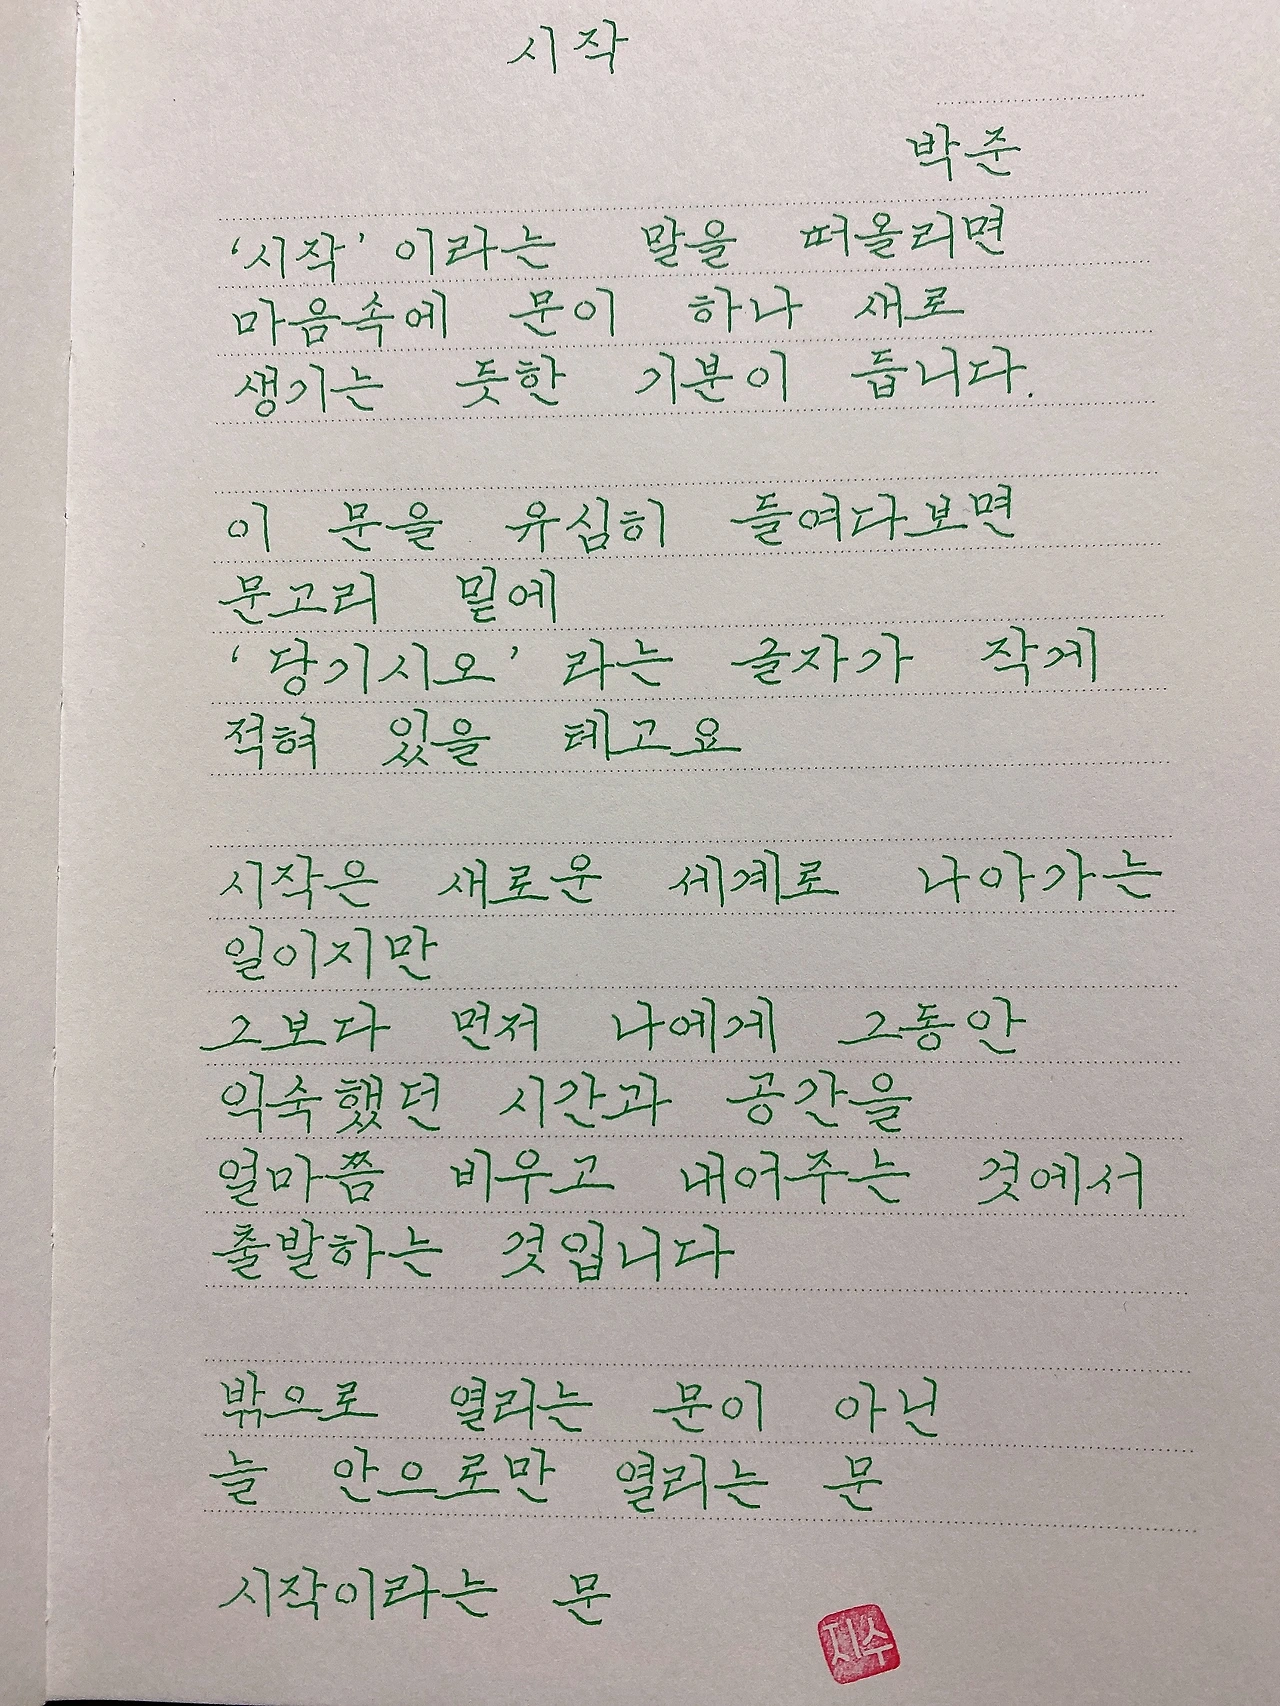 시작
박준
'시작' 이라는 말을 떠올리면
마음속에 문이 하나 새로
생기는 듯한 기분이 듭니다.
이 문을 유심히 들여다보면
문고리 밑에
'당기시오' 라는 글자가 작게
적혀 있을 테고요
시작은 새로운 세계로 나아가는
일이지만
그보다 먼저 나에게 그동안
익숙했던 시간과 공간을
얼마쯤 비우고 내어주는 것에서
출발하는 것입니다
밖으로 열리는 문이 아닌
늘 안으로만 열리는 문
시작이라는 문
지수